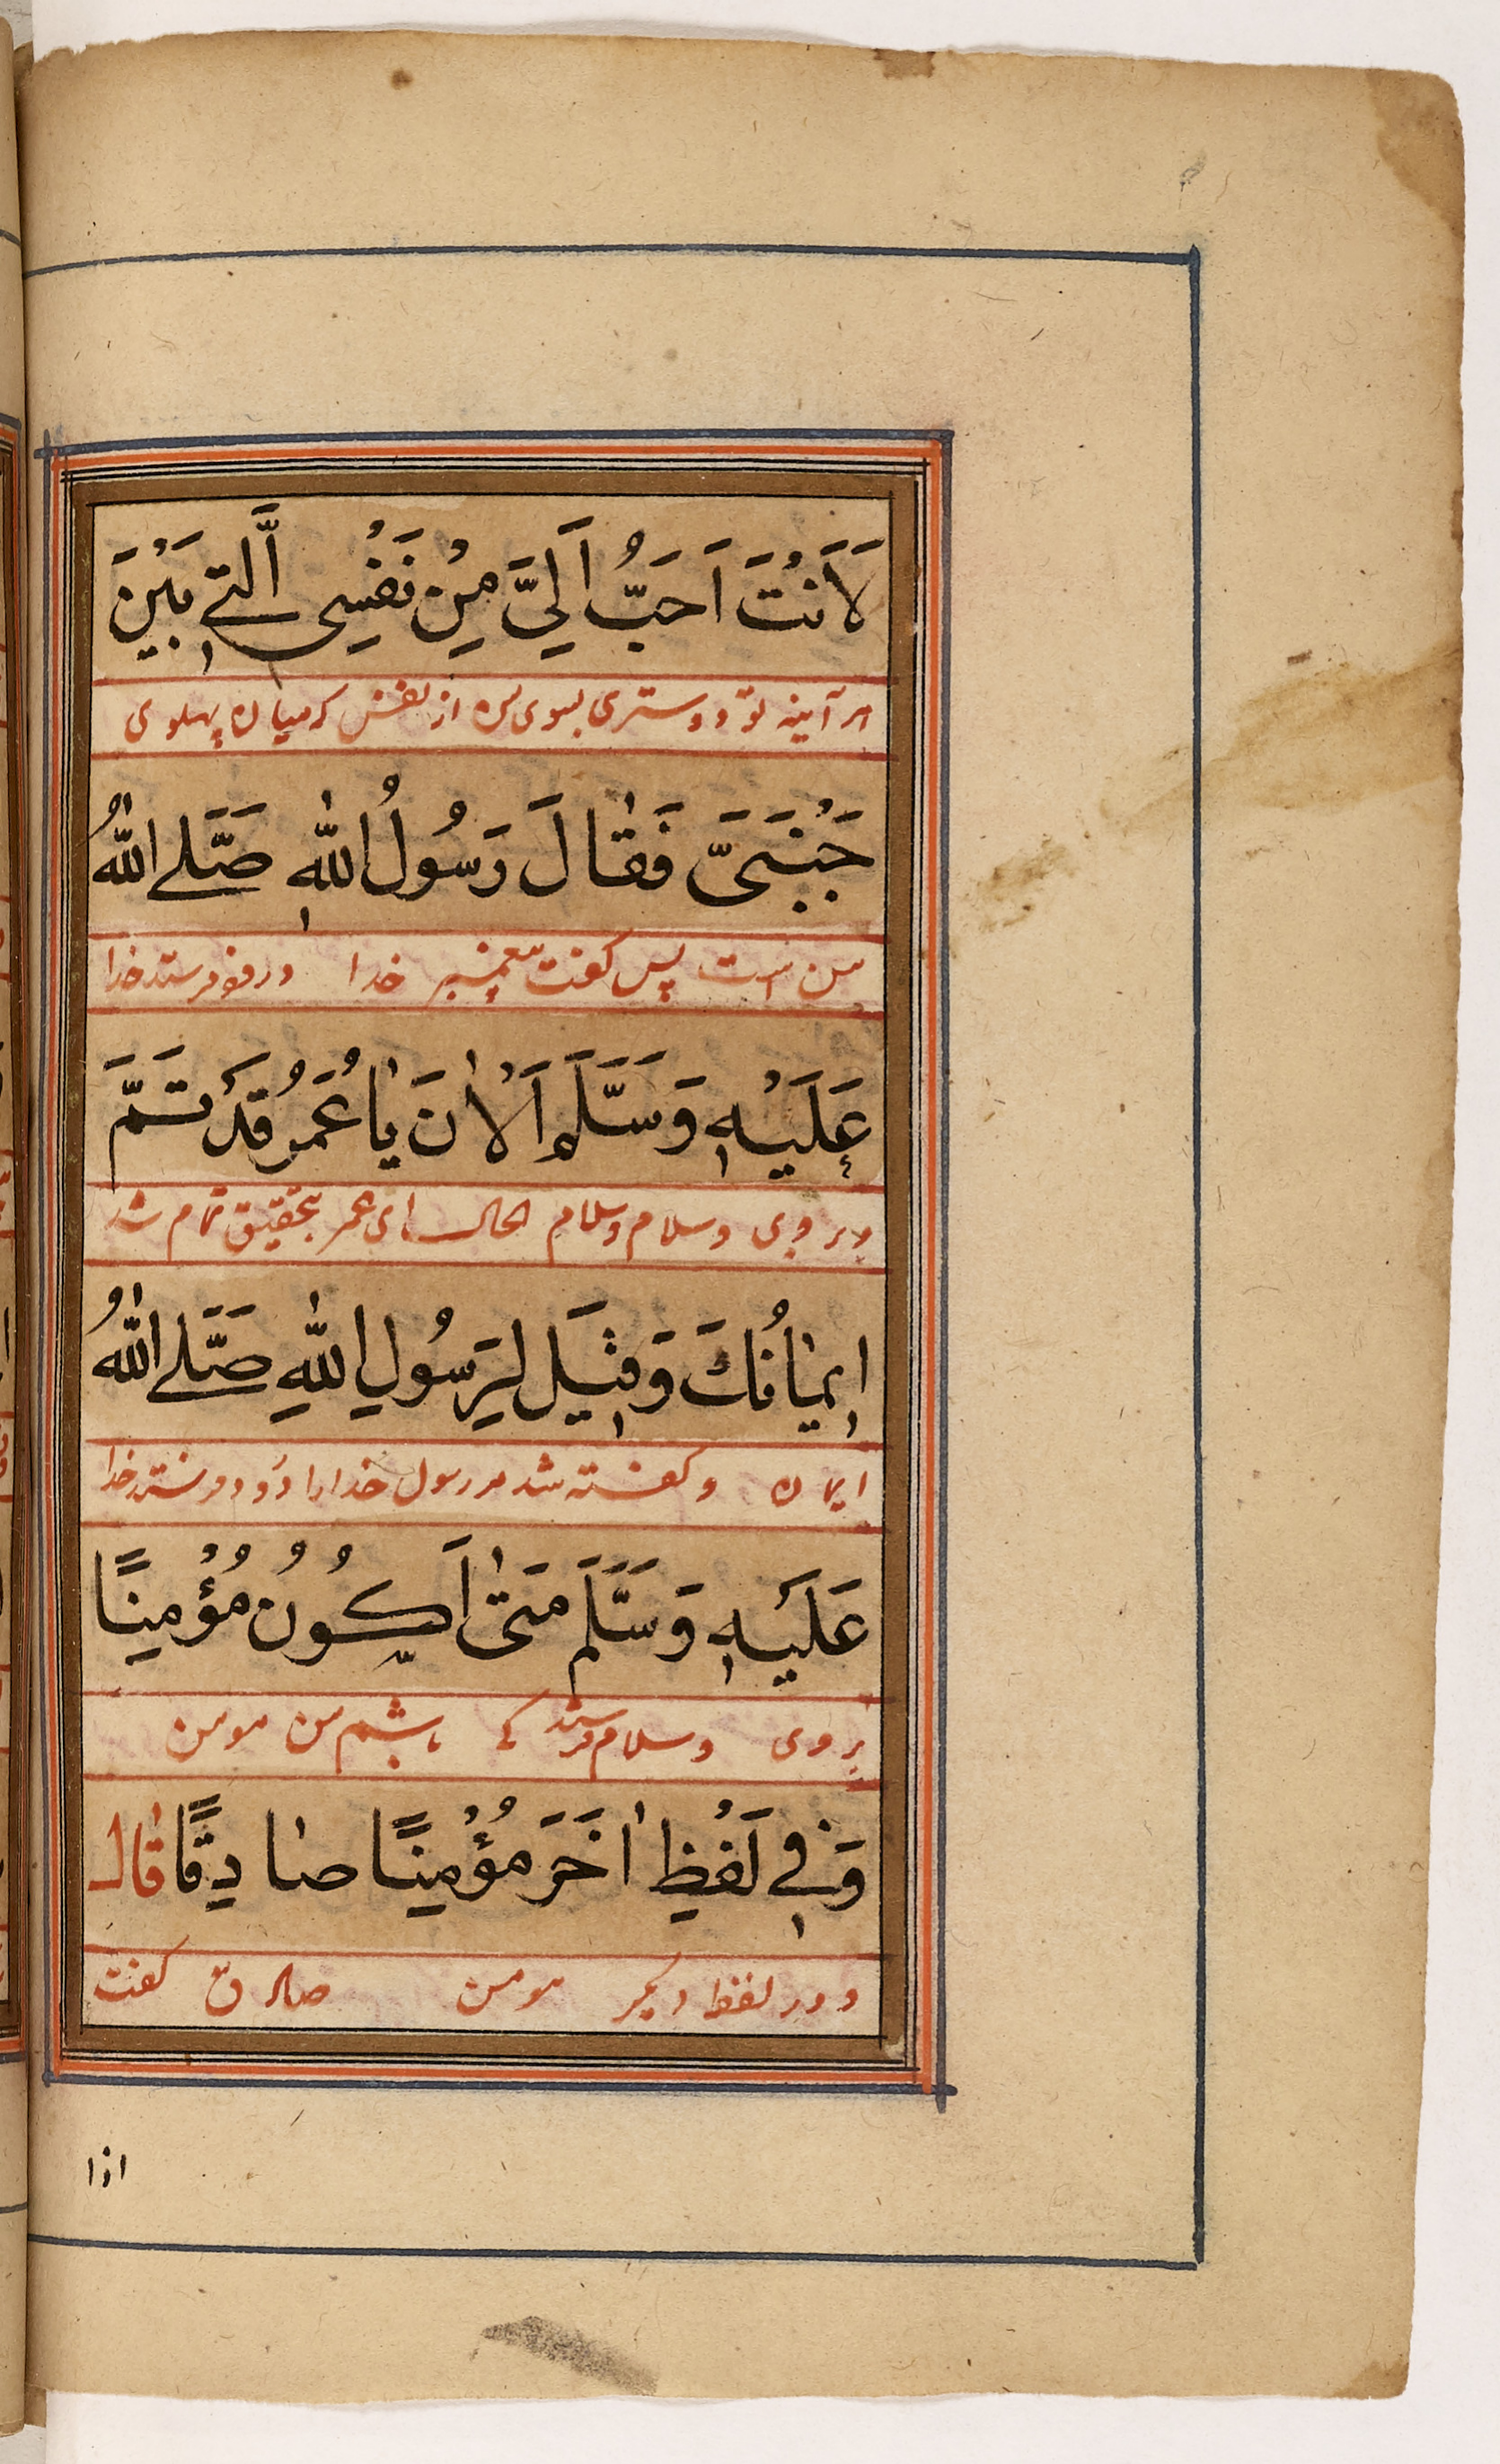 لَاَنْتَ اَحَبُّ اَلِيَّ مِنْ نَفْسِى الَّتِى بَيْنَ
هر آینه تو دوستری بسوی من از نفس که میان پهلوی
جَنْبَىَّ فَقَالَ رَسُولُ اللّٰهِ صَلَّى اللّٰهُ
من است پس کفت پیغمبر خدا درود فرستد خدا
عَلَيْهِ وَسَلَّمَ اَلْاٰنَ يَا عُمَرُ قَدْ تَمَّ
بر وی وسلام وسلام الحال ای عمر بتحقیق تمام شد
اِيمَانُكَ وَقِيلَ لِرَسُولِ اللّٰهِ صَلَّى اللّٰهُ
ایمان و کفته شد مر رسول خدا را درود فرستد خدا
عَلَيْهِ وَسَلَّمَ مَتٰى اَكُونُ مُؤْمِنًا
بر وی وسلام فرستد کی باشم من مومن
وَفِى لَفْظٍ اٰخَرَ مُؤْمِنًا صَادِقًا قَالَ
و در لفظ دیکر مومن صادق کفت
اذا